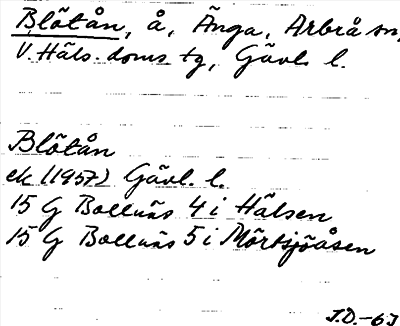 Blötån, å, Änga, Arbrå sn,
V. Häls. doms. tg, Gävl. l.
Blötån
ek (1957) Gävl. l.
15 G Bollnäs 4 i Hälsen
15 G Bollnäs 5 i Mörtsjöåsen
J.D.-63